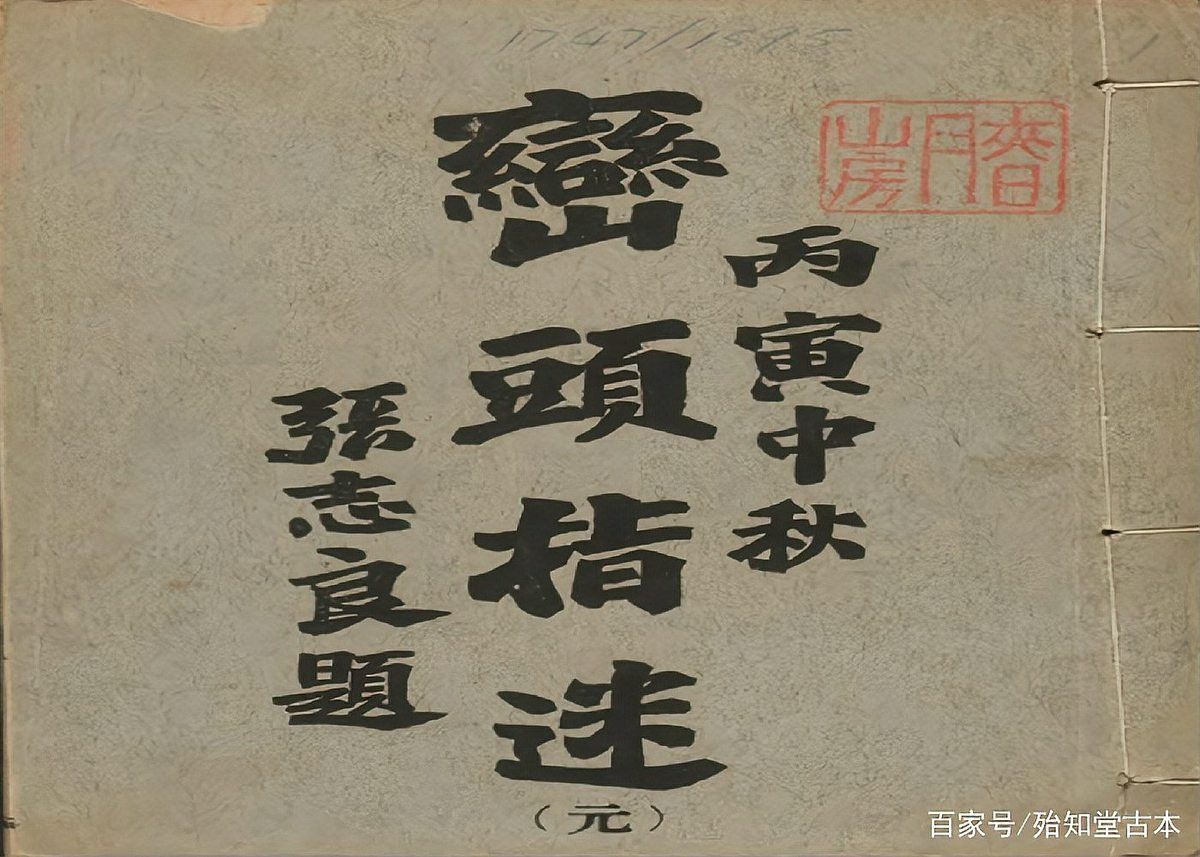 1747/1595
山房
丙寅中秋
巒頭指迷
（元）
張志良題
百家号/殆知堂古本